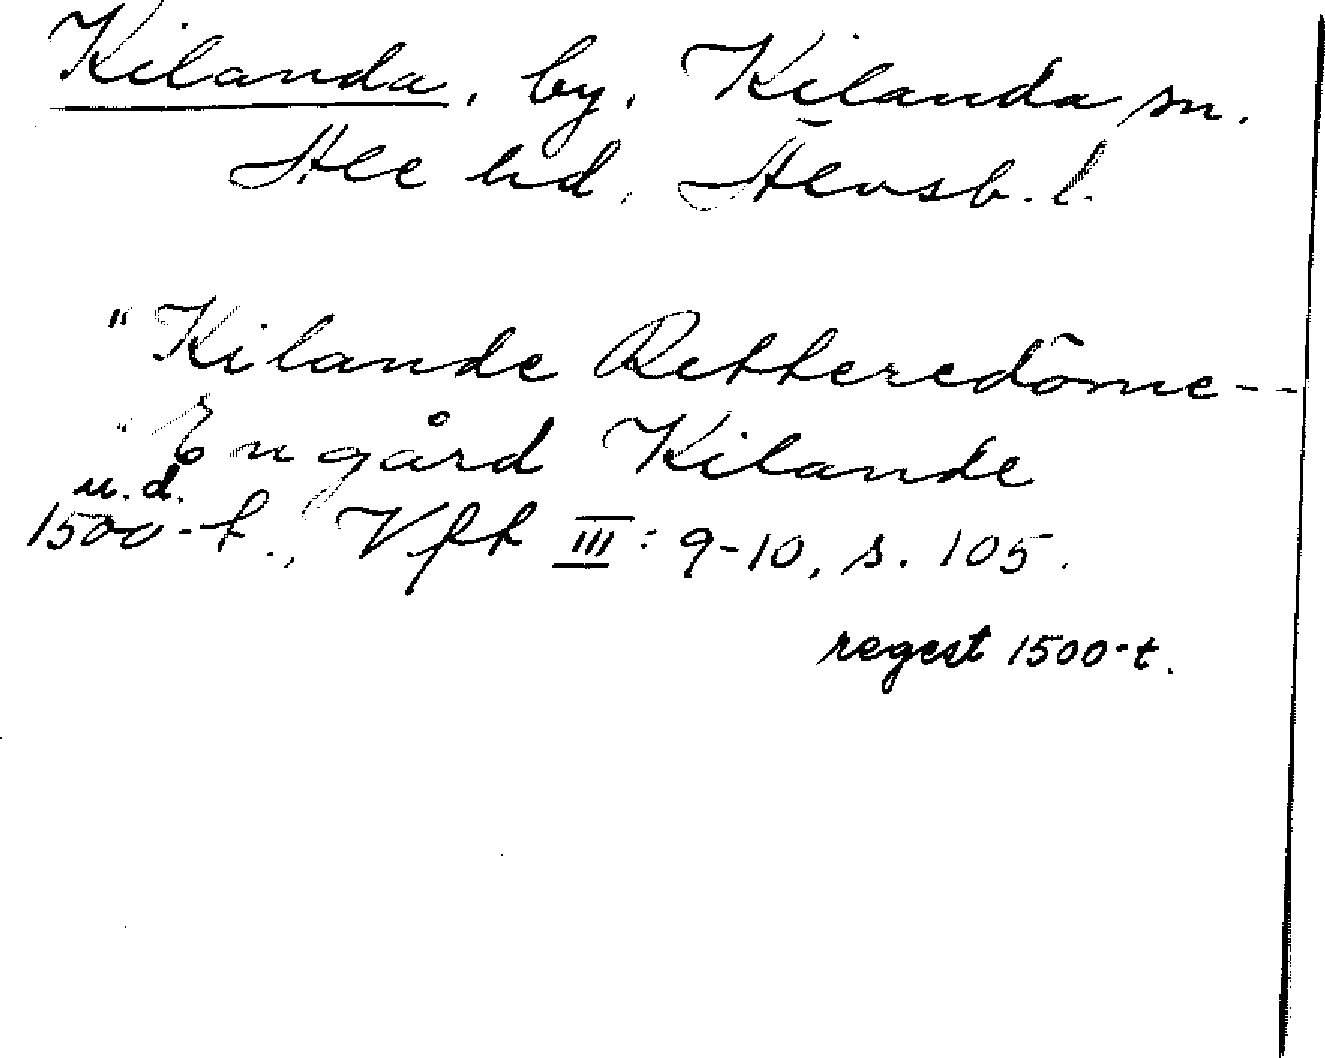 Kilanda, by, Kilanda sn.
Ale hd, Älvsb. l.
"Kilande Retteredöme--
"En gård Kilande
u.d.
1500-t., Vft III: 9-10, s. 105.
regest 1500-t.